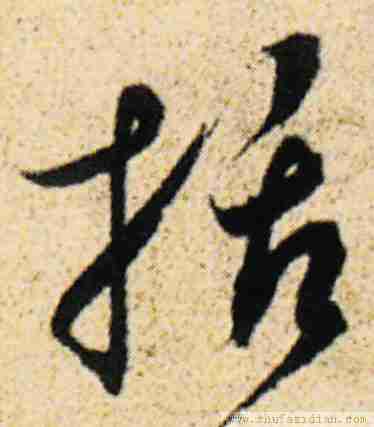 括
www.shufazidian.com